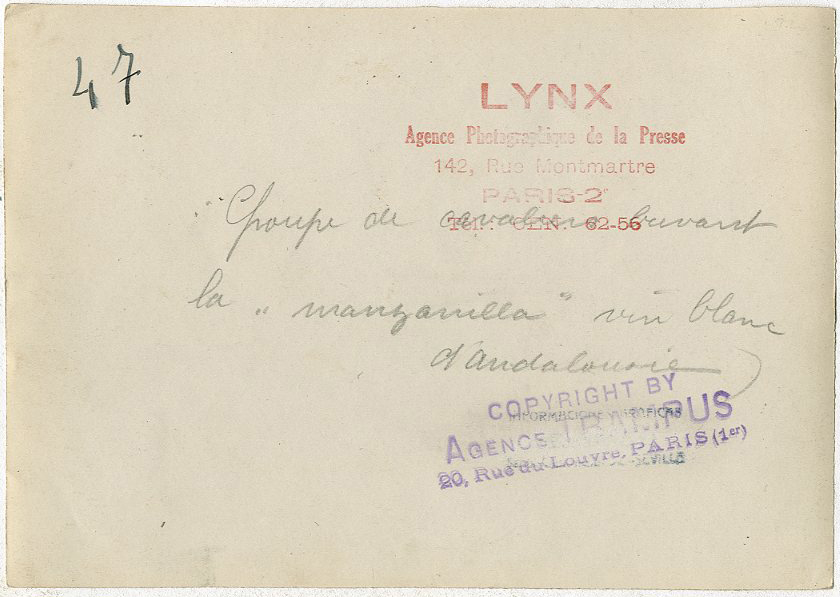 47
LYNX
Agence Photographique de la Presse
142, Rue Montmartre
PARIS-2e
Tél.: CEN. 62-56
Groupe de cavaliers buvant
la "manzanilla" vin blanc
d'Andalousie
COPYRIGHT BY
INFORMACIONES GRAFICAS
AGENCE TRAMPUS
20, Rue du Louvre, PARIS (1er)
SEVILLA